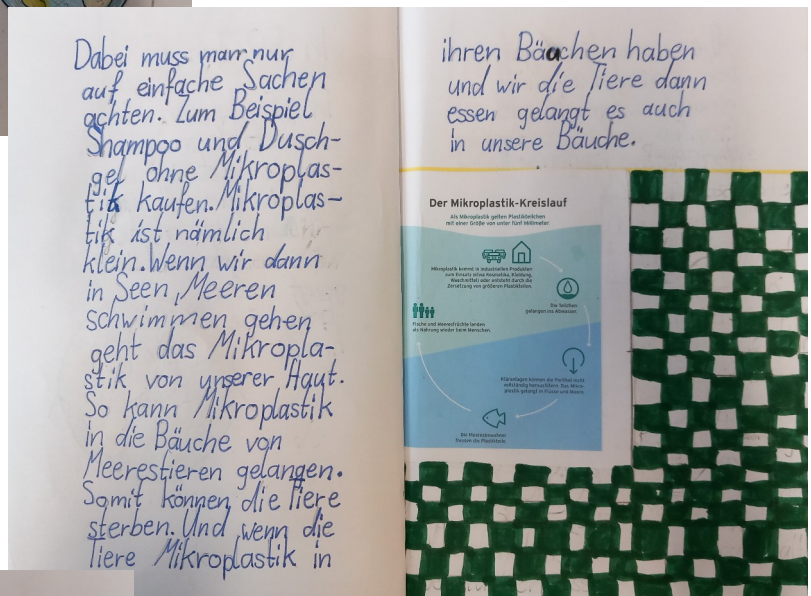 Dabei muss man nur
auf einfache Sachen
achten. Zum Beispiel
Shampoo und Dusch-
gel ohne Mikroplas-
tik kaufen. Mikroplas-
tik ist nämlich
klein. Wenn wir dann
in Seen, Meeren
schwimmen gehen
geht das Mikropla-
stik von unserer Haut.
So kann Mikroplastik
in die Bäuche von
Meerestieren gelangen.
Somit können die Tiere
sterben. Und wenn die
Tiere Mikroplastik in
ihren Bäuchen haben
und wir die Tiere dann
essen gelangt es auch
in unsere Bäuche.
Der Mikroplastik-Kreislauf
Als Mikroplastik gelten Plastikteilchen
mit einer Größe von unter fünf Millimeter.
Mikroplastik kommt in industriellen Produkten
zum Einsatz (etwa Kosmetika, Kleidung,
Waschmittel) oder entsteht durch die
Zersetzung von größeren Plastikteilen.
Die Teilchen
gelangen ins Abwasser.
Kläranlagen können die Partikel nicht
vollständig herausfiltern. Das Mikro-
plastik gelangt in Flüsse und Meere.
Die Meeresbewohner
fressen die Plastikteile.
Fische und Meeresfrüchte landen
als Nahrung wieder beim Menschen.